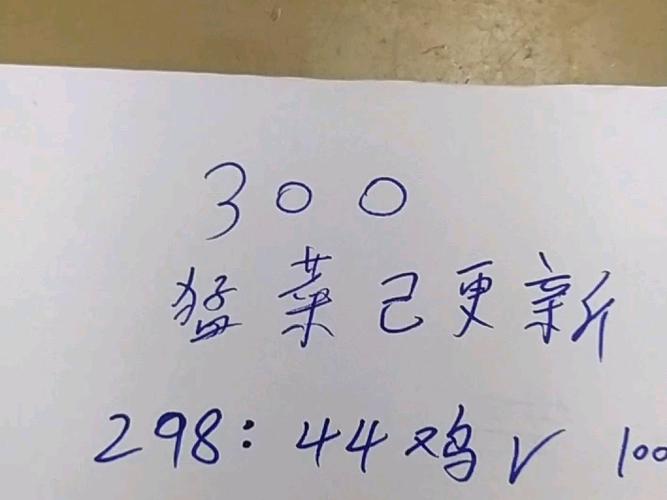 300
猛菜已更新
298: 44鸡√ 100